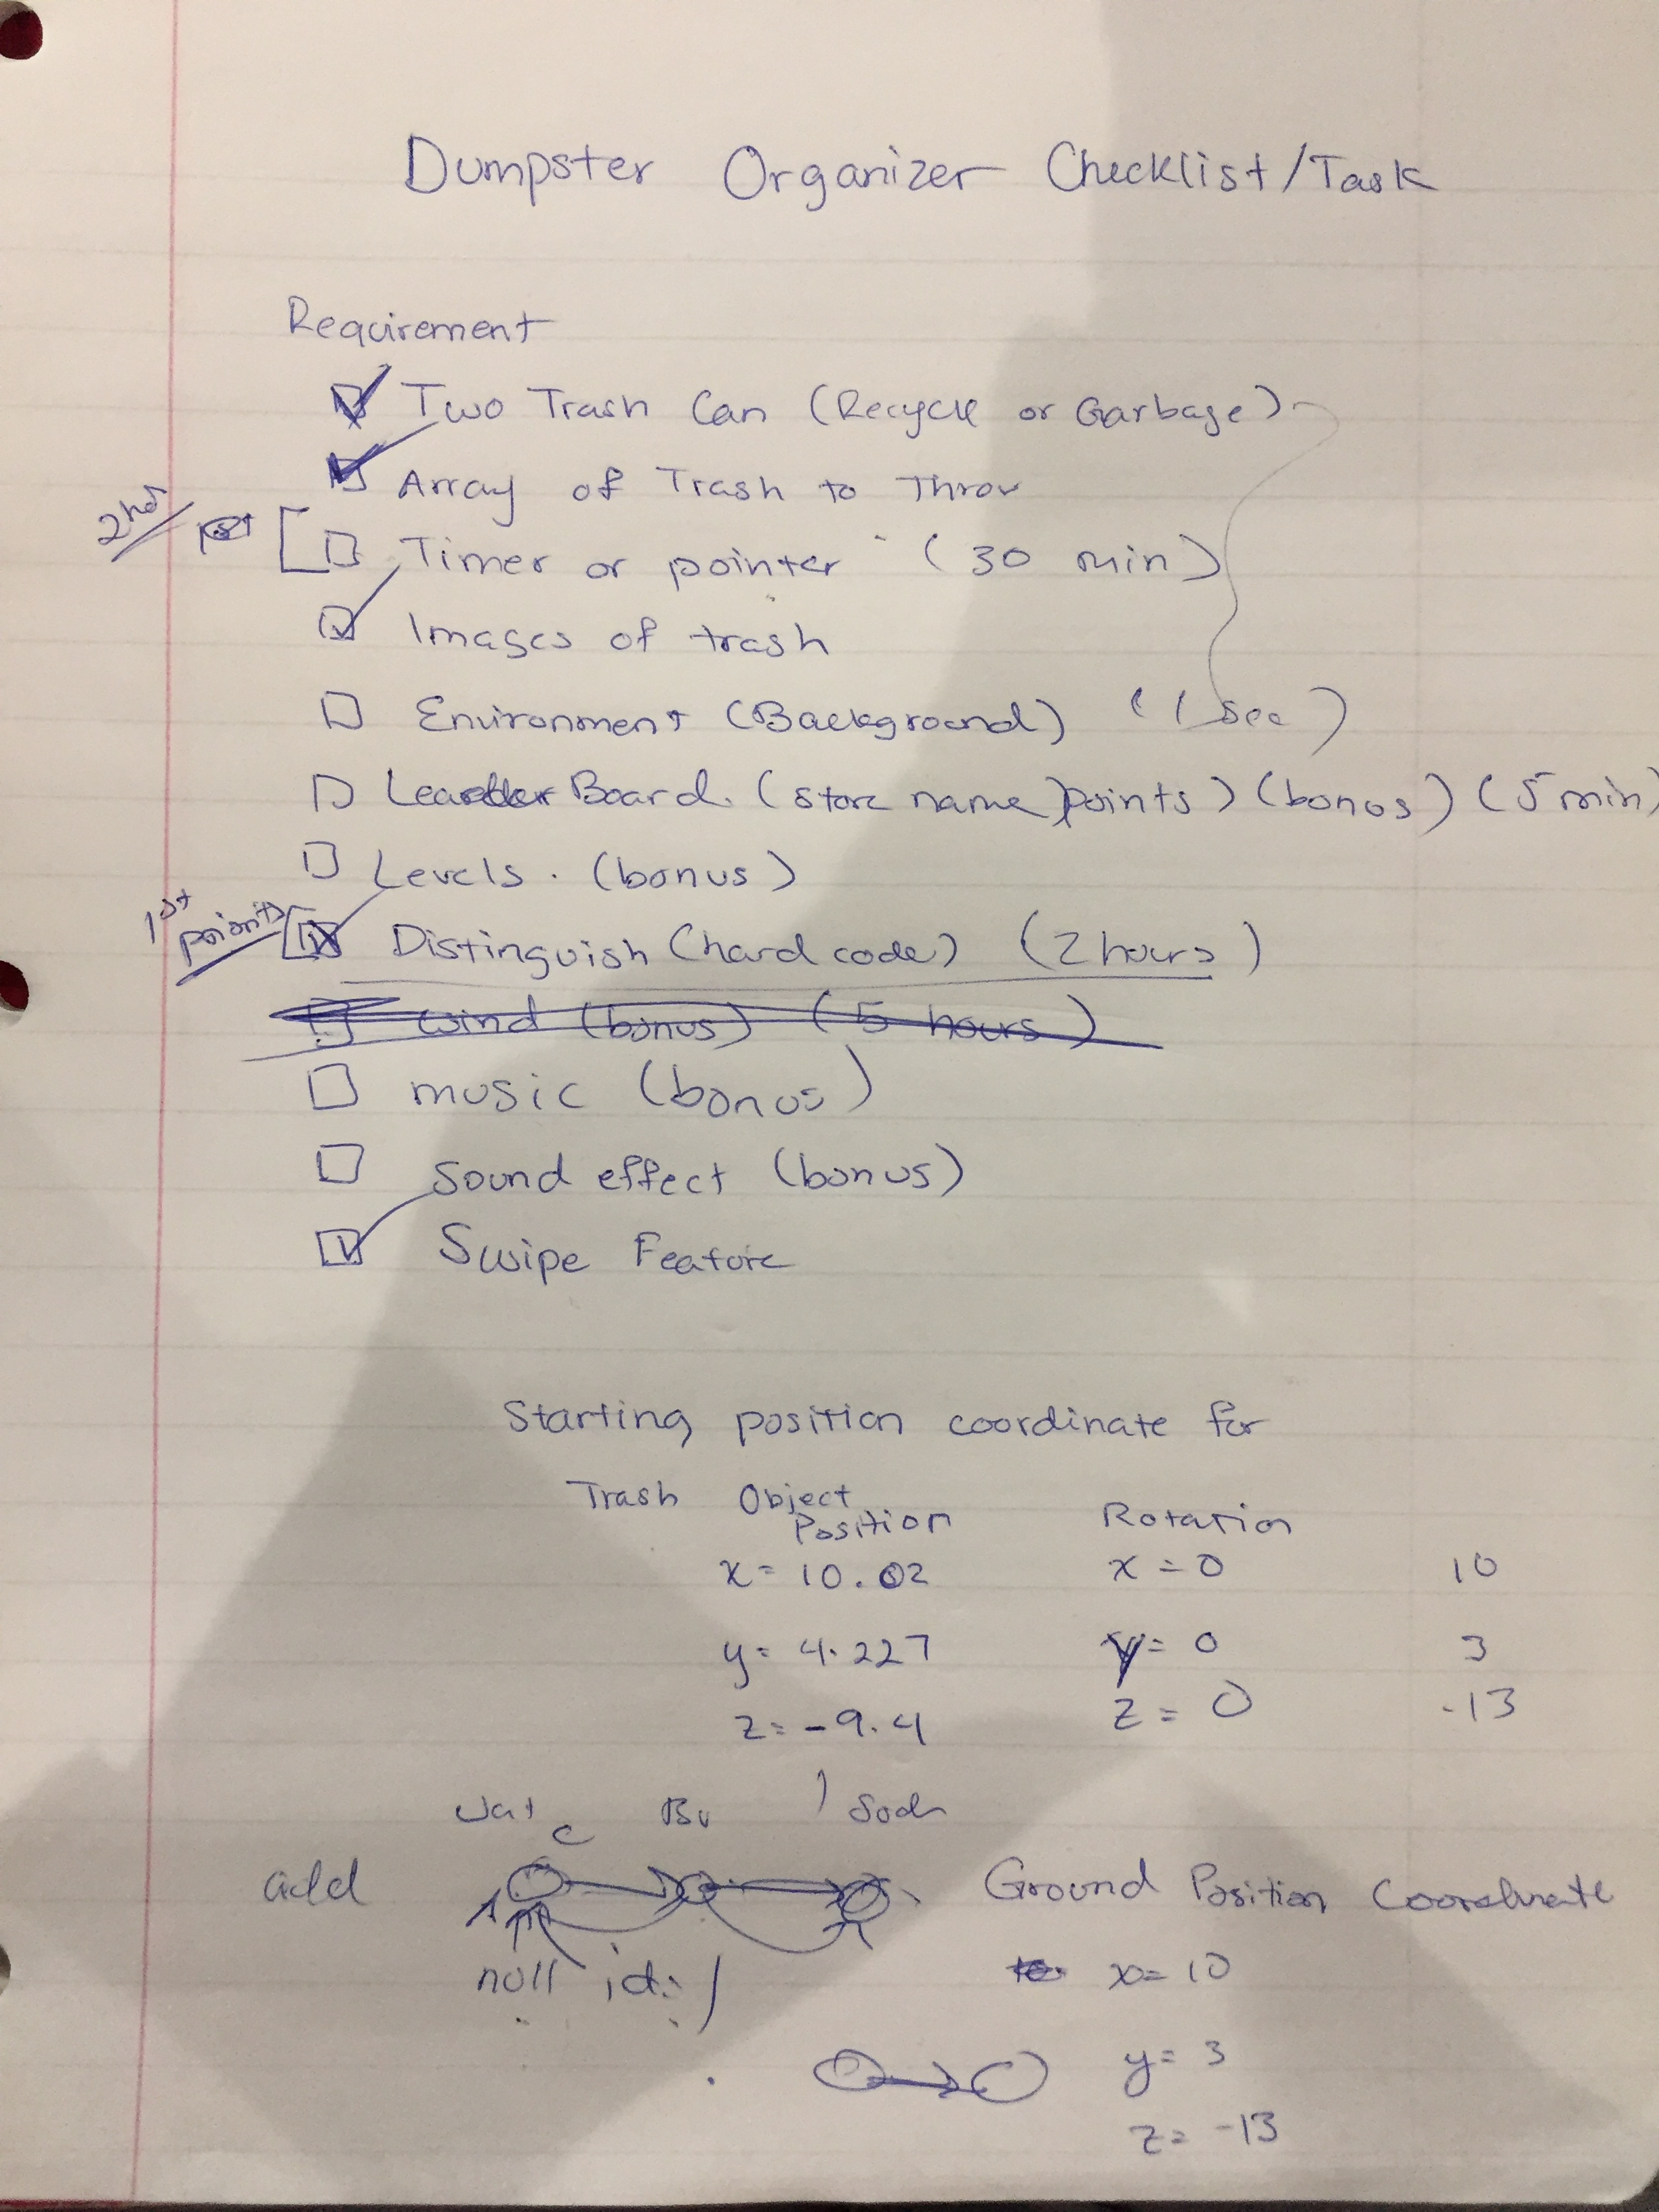 Dumpster Organizer Checklist/Task
Requirement
Two Trash Can (Recycle or Garbage)
Array of Trash to Throw
2nd/
Timer or pointer (30 min)
Images of trash
Environment (Background) (1 sec)
Leader Board (store name/points) (bonus) (5 min)
Levels. (bonus)
1st priority
Distinguish (hard code) (2 hours)
wind (bonus) (5 hours)
music (bonus)
Sound effect (bonus)
Swipe Feature
Starting position coordinate for
Trash Object
Position Rotation
x= 10.02 x=0 10
y= 4.227 y= 0 3
z= -9.4 z= 0 -13
Bu
add
Ground Position Coordinate
null id: x= 10
y= 3
z= -13